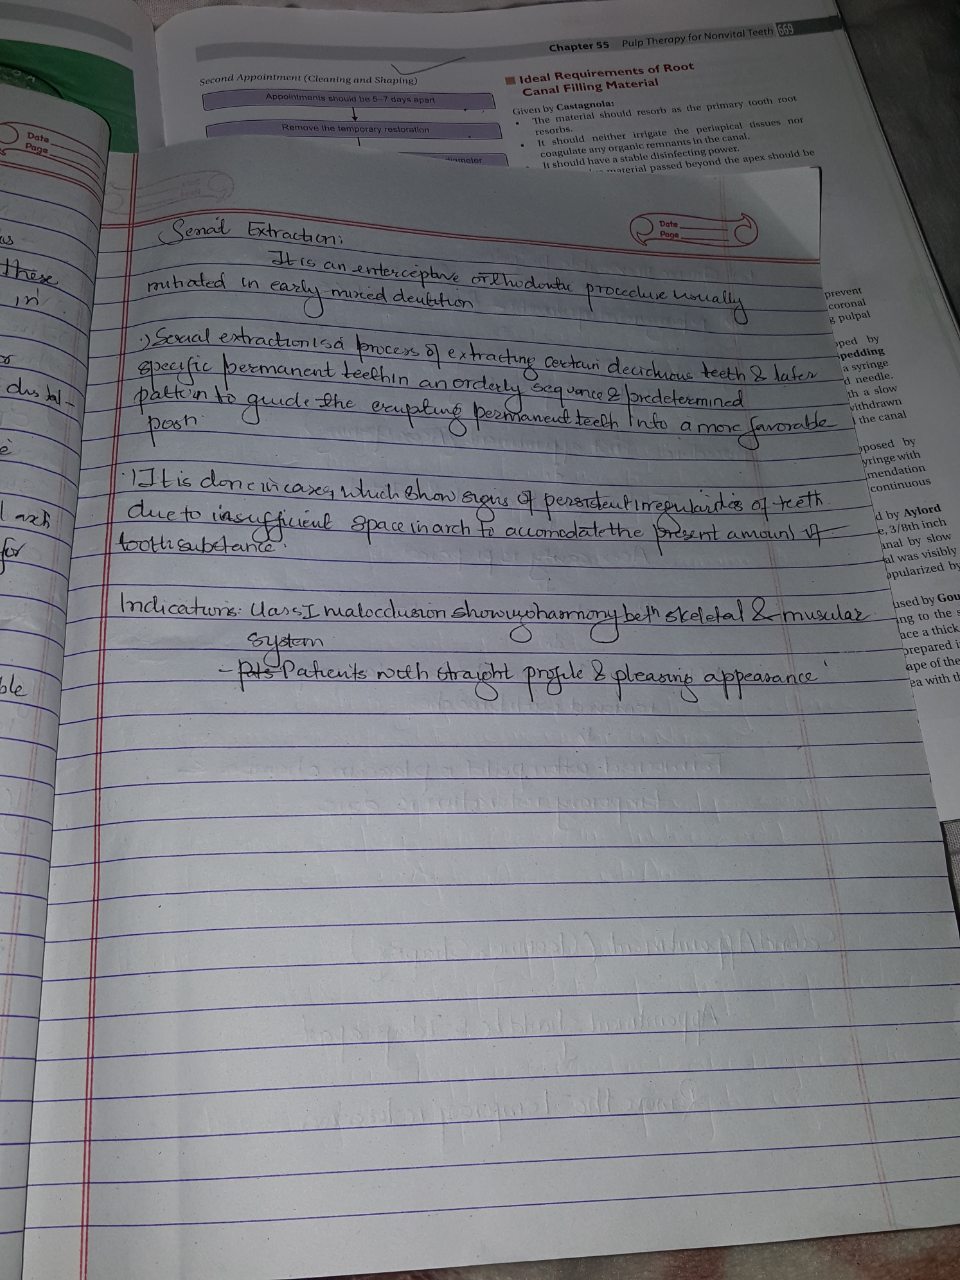 Chapter 55 Pulp Therapy for Nonvital Teeth 669
Second Appointment (Cleaning and Shaping)
Appointments should be 5–7 days apart
Remove the temporary restoration
Ideal Requirements of Root
Canal Filling Material
Given by Castagnola:
• The material should resorb as the primary tooth root
resorbs.
• It should neither irrigate the periapical tissues nor
coagulate any organic remnants in the canal.
It should have a stable disinfecting power.
material passed beyond the apex should be
Date
Page
Date
Page
Serial Extraction:
It is an enterceptive orthodontic procedure usually
initiated in early mixed dentition
·) Serial extraction is a process of extracting certain deciduous teeth & later
specific permanent teeth in an orderly sequence & predetermined
pattern to guide the erupting permanent teeth into a more favorable
posn.
·) It is done in cases, which show signs of persistent irregularities of teeth
due to insufficient space in arch to accomodate the present amount of
tooth substance.
Indications: Class I malocclusion showing harmony betn skeletal & muscular
system
- Patients with straight profile & pleasing appearance
these
in
dustal =
arch
for
prevent
coronal
pulpal
by
pedding
a syringe
needle.
th a slow
withdrawn
the canal
posed by
yringe with
mendation
continuous
d by Aylord
e, 3/8th inch
anal by slow
al was visibly
opularized by
used by Gou
ing to the
ace a thick
prepared
ape of the
ea with